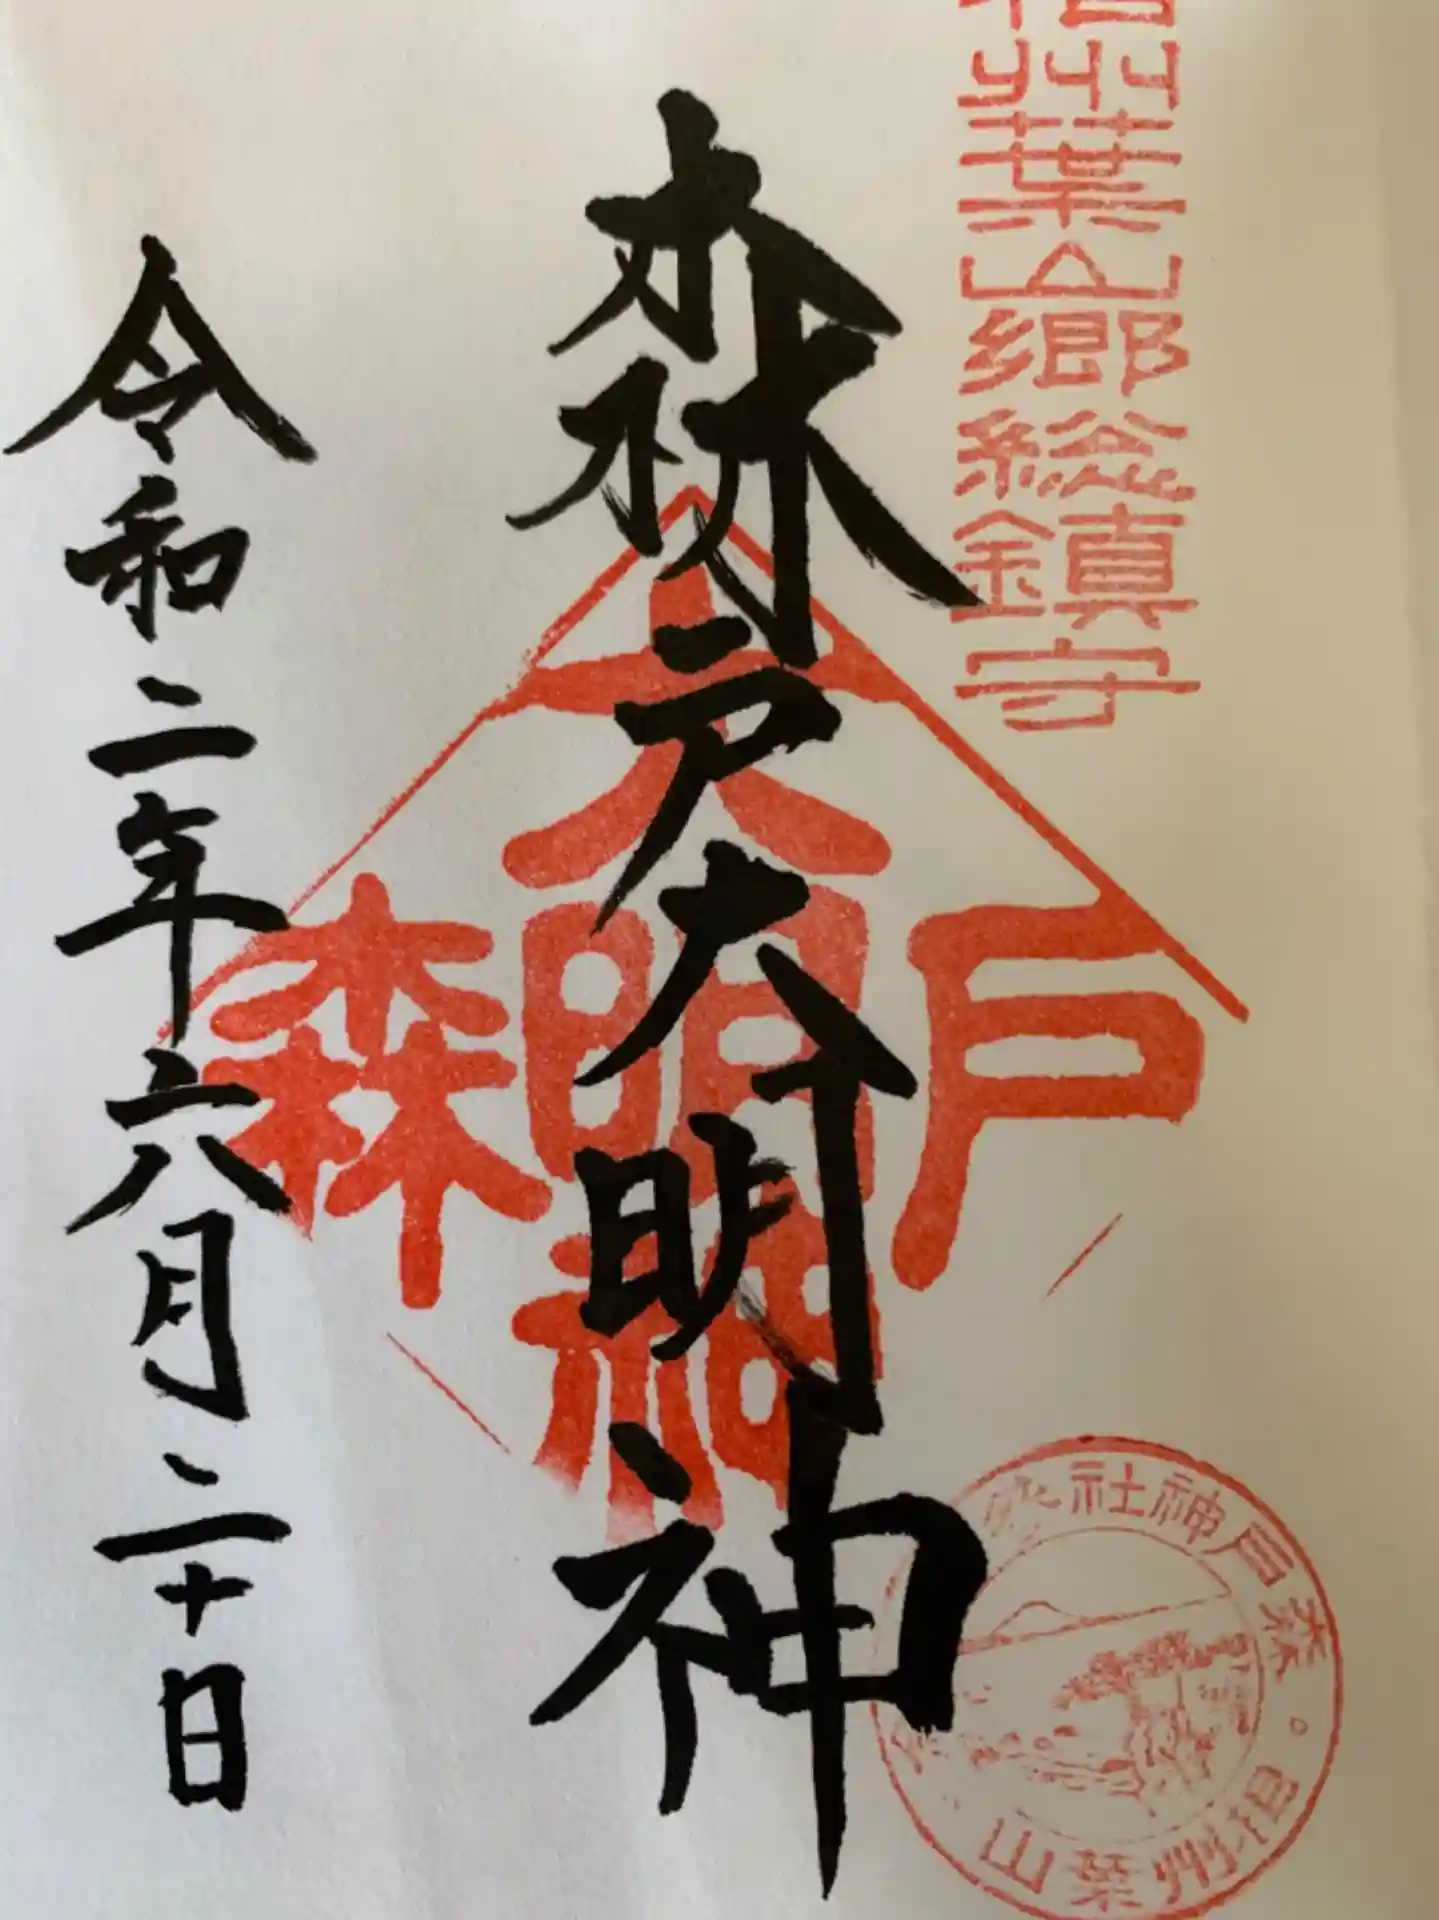 相州葉山郷総鎮守
森戸大明神
令和二年六月二十日
大
森明戸
神
森戸神社
相州葉山